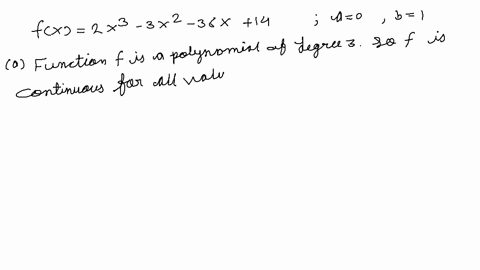 f(x) = 2x³ - 3x² - 36x + 14 ; a=0 , b=1
(a) Function f is a polynomial of degree 3. So f is
continuous for all valu